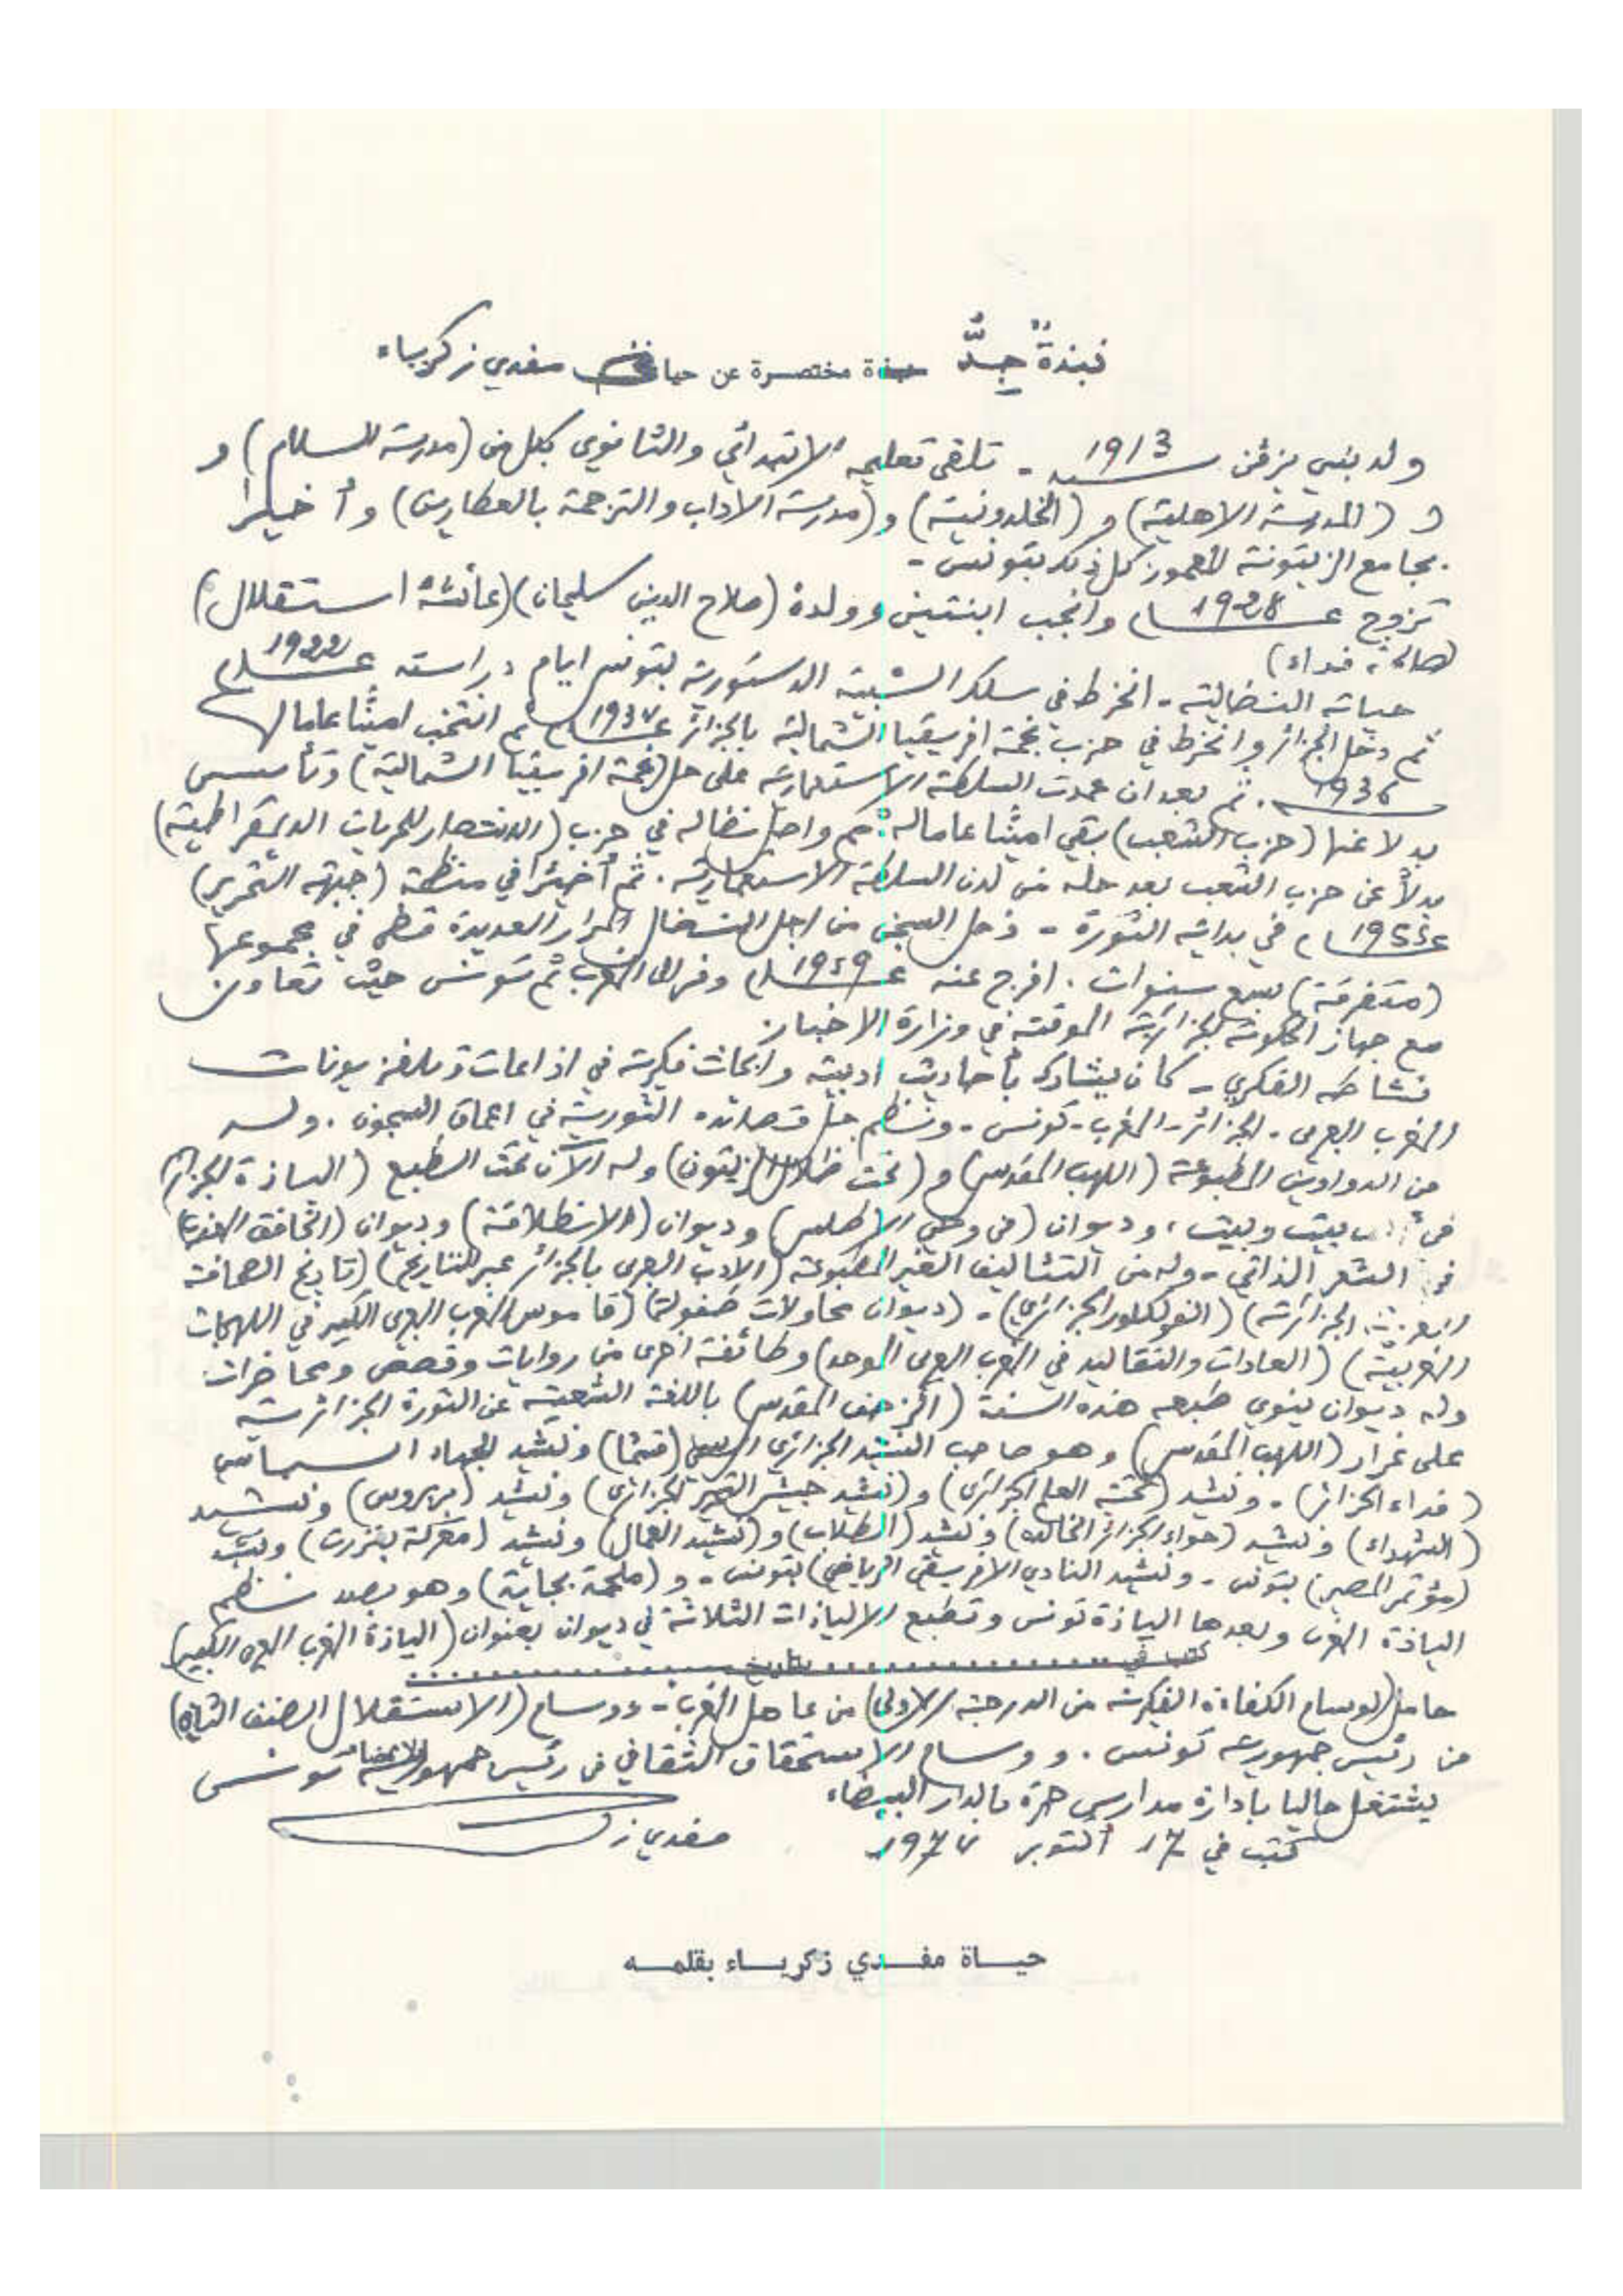 نبذةٌ جِدُّ مختصرة عن حياة مفدي زكرياء
ولد ببني يزقن سنة 1913 - تلقى تعليمه الابتدائي والثانوي بكل من (مدرسة السلام) و
و (المدرسة الاهلية) و (الخلدونية) و (مدرسة الآداب والترجمة بالعطارين) وأخيرا
بجامع الزيتونة المعمور كل ذلك بتونس -
تزوج عام وانجب ابنتين وولدة (صلاح الدين سليمان) (عائشة استقلال)
(صالحة فداء)
حياته النضالية - انخرط في سلك الشبيبة الدستورية بتونس ايام دراسته عام
ثم دخل الجزائر وانخرط في حزب نجمة افريقيا الشمالية بالجزائر عام ثم انتخب امينا عاما لها
ثم بعد ان عمدت السلطة الاستعمارية على حل (نجمة افريقيا الشمالية) وتأسس
بدلا عنها (حزب الشعب) بقي امينا عاما له ثم واصل نضاله في حزب (الانتصار للحريات الديمقراطية)
بدلاً عن حزب الشعب بعد حله من لدن السلطة الاستعمارية . ثم أخيرا في منظمة (جبهة التحرير)
عام في بداية الثورة - دخل السجن من اجل النضال المرار العديدة قضى في مجموعها
(متفرقة) سبع سنوات . افرج عنه عام وفر الى المغرب ثم تونس حيث تعاون
مع جهاز الحكومة الجزائرية الموقتة في وزارة الاخبار.
نشاطه الفكري - كان يشارك بأحاديث ادبية وابحاث فكرية في اذاعات وتلفزيونات
المغرب العربي - الجزائر - المغرب - تونس - ونظم جل قصائده الثورية في اعماق السجون . وله
من الدواوين المطبوعة (اللهب المقدس) و (تحت ظلال الزيتون) وله الآن تحت الطبع (اليـاذة الجزائر)
في بيت وبيت ، وديوان (من وحي الاطلس) وديوان (الانطلاقة) وديوان (الخافق المعذب)
في الشعر الذاتي - وله من التئاليف الغير المطبوعة (الادب العربي بالجزائر عبر التاريخ) (تاريخ الصحافة
العربية الجزائرية) (الفولكلور الجزائري) - (ديوان محاولات طفولة) (قاموس المغرب العربي الكبير في اللهجات
المغربية) (العادات والتقاليد في المغرب العربي الموحد) وطائفة اخرى من روايات وقصص ومحاضرات
وله ديوان ينوي طبعه هذه السنة (الزحف المقدس) باللغة الشعبية عن الثورة الجزائرية
على غرار (اللهب المقدس) وهو صاحب النشيد الجزائري الرسمي (قسما) ونشيد الجهاد السياسي
(فداء الجزائر) - ونشيد (تحية العلم الجزائري) و (نشيد جيش التحرير الجزائري) ونشيد (بربروس) ونشيد
(الشهداء) ونشيد (حواء الجزائر الخالدة) ونشيد (الطلاب) و (نشيد العمال) ونشيد (معركة بنزرت) ونشيد
(مؤتمر المصير) بتونس - ونشيد النادي الافريقي الرياضي) بتونس - و (ملحمة بجاية) وهو بصدد نظم
الياذة المغرب وبعدها الياذة تونس وتطبع الالياذات الثلاثة في ديوان بعنوان (الياذة المغرب العربي الكبير)
كتب في ........ بتاريخ ........
حامل (لوسام الكفاءة الفكرية من الدرجة الاولى) من عاهل المغرب - ووسام (الاستقلال الصنف الثاني)
من رئيس جمهورية تونس . ووسام الاستحقاق الثقافي من رئيس جمهورية تونس
الامضاء
يشتغل حاليا بادارة مدارس حرة بالدار البيضاء
كتب في 17 أكتوبر مفدي ز
حيـاة مفـدي زكريـاء بقلمـه